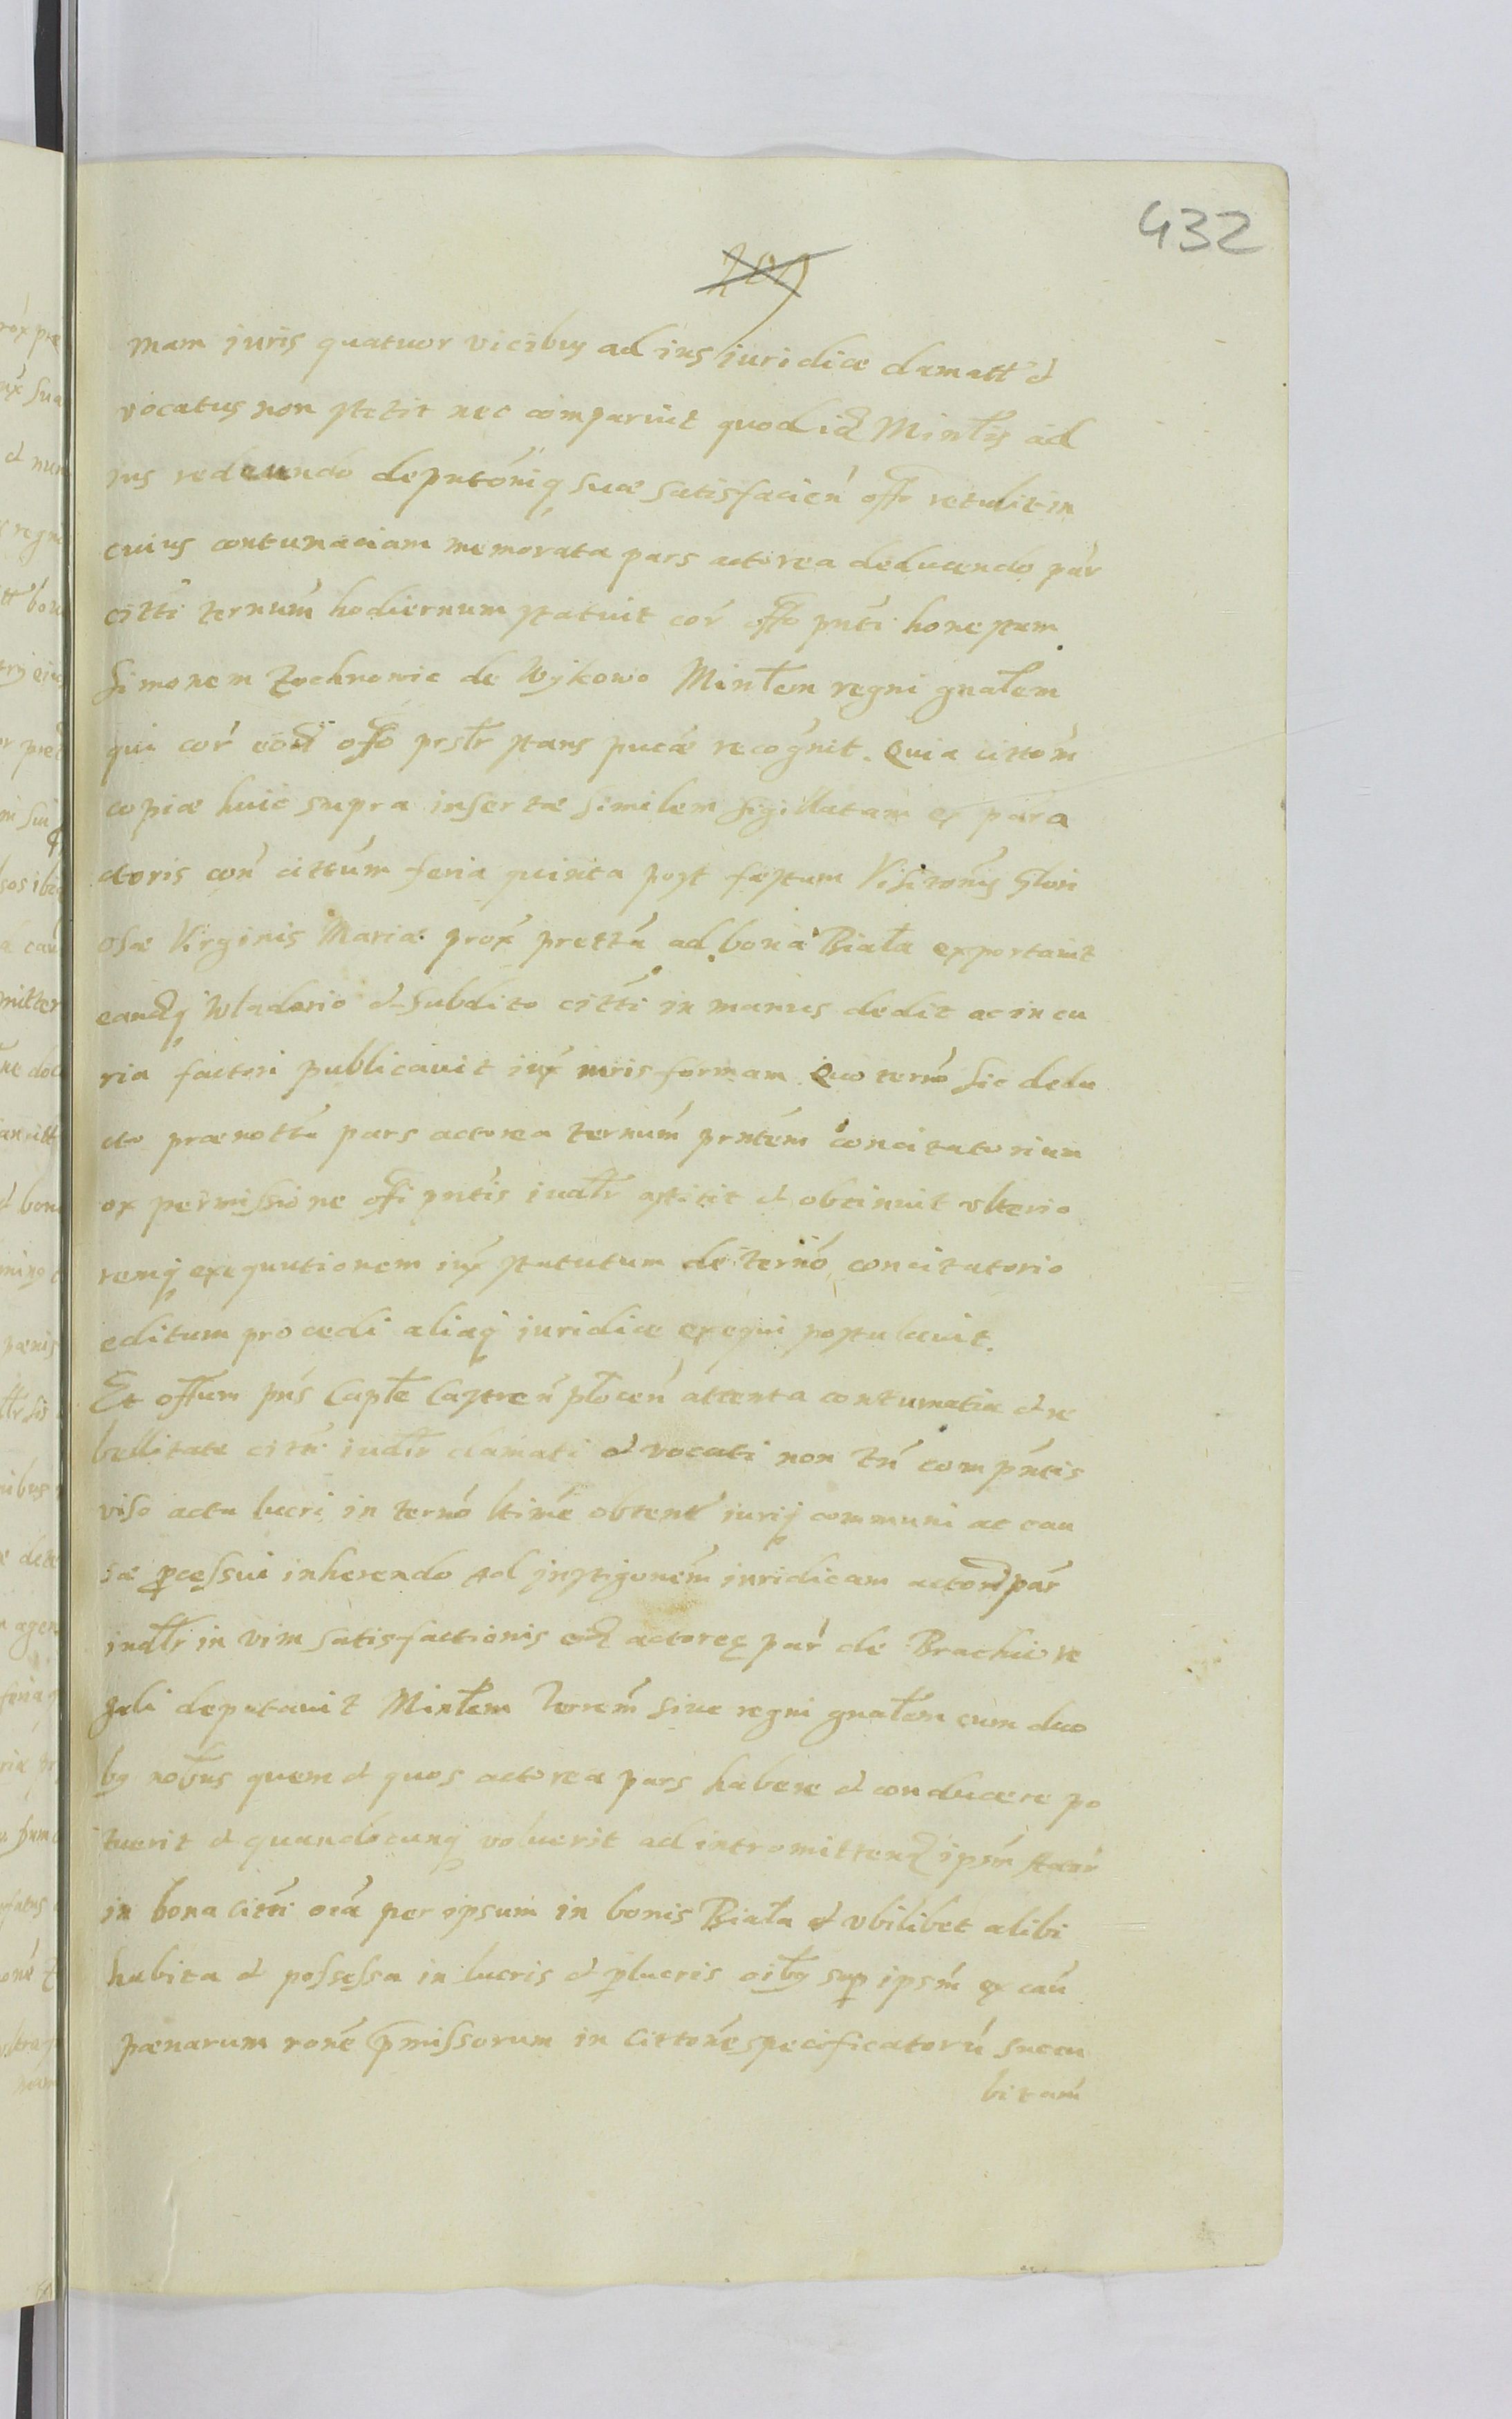 432
209
mam iuris quatuor vicibus ad ius iuridice clamatt et
vocatus non stetit nec comparuit quod id Mintlis ad
ius redeundo deputoniq suæ satisfacien offo retulit in
cuius contumaciam memorata pars actorea deducendo par
citti ternum hodiernum statuit cor offo pnti honestum
Simonem Zochnowic de Wykowo Mintlem regni gnalem
qui cor eod offo prsltr stans pucæ recognit. Quia cittom
copiæ huic supra insertæ similem sigillatam ex par a
ctoris con cittum feria quinta post festum Visitonis Glori
osæ Virginis Mariæ prox prettu ad bona Biała exportauit
eandq Wladario et subdito citti in manus dedit ac in cu
ria factori publicauit iux iuris formam. Quo terno sic dedu
cto prænotta pars actorea ternum prntem concitatorium
ex permissione offi pntis iudltr astitit et obtinuit vlterio
remq exequutionem iux statutum de terno concitatorio
editum procedi aliaq iuridice exequi postulauit.
Et offum pns Capłe Castren płocen attenta contumatia et re
bellitate citti iudltr clamati et vocati non tn compntis
viso actu lucri in terno ltime obtent iuriq communi ac cau
sæ pcessui inherendo ad instigonem iuridicam actore par
iudltr in vim satisfactionis eid actoreę par de Brachio re
gali deputauit Mintlem terrem siue regni gnalem cum duo
bus nobus quem et quos actorea pars habere et conducere po
tuerit et quandocunq voluerit ad intromittend ipsm Actor
in bona citti oia per ipsum in bonis Biała et vbilibet alibi
habita et possessa in lucris et plucris oibus sup ipsm ex cau
pænarum rone pmissorum in cittone specificatoru succu
bitam